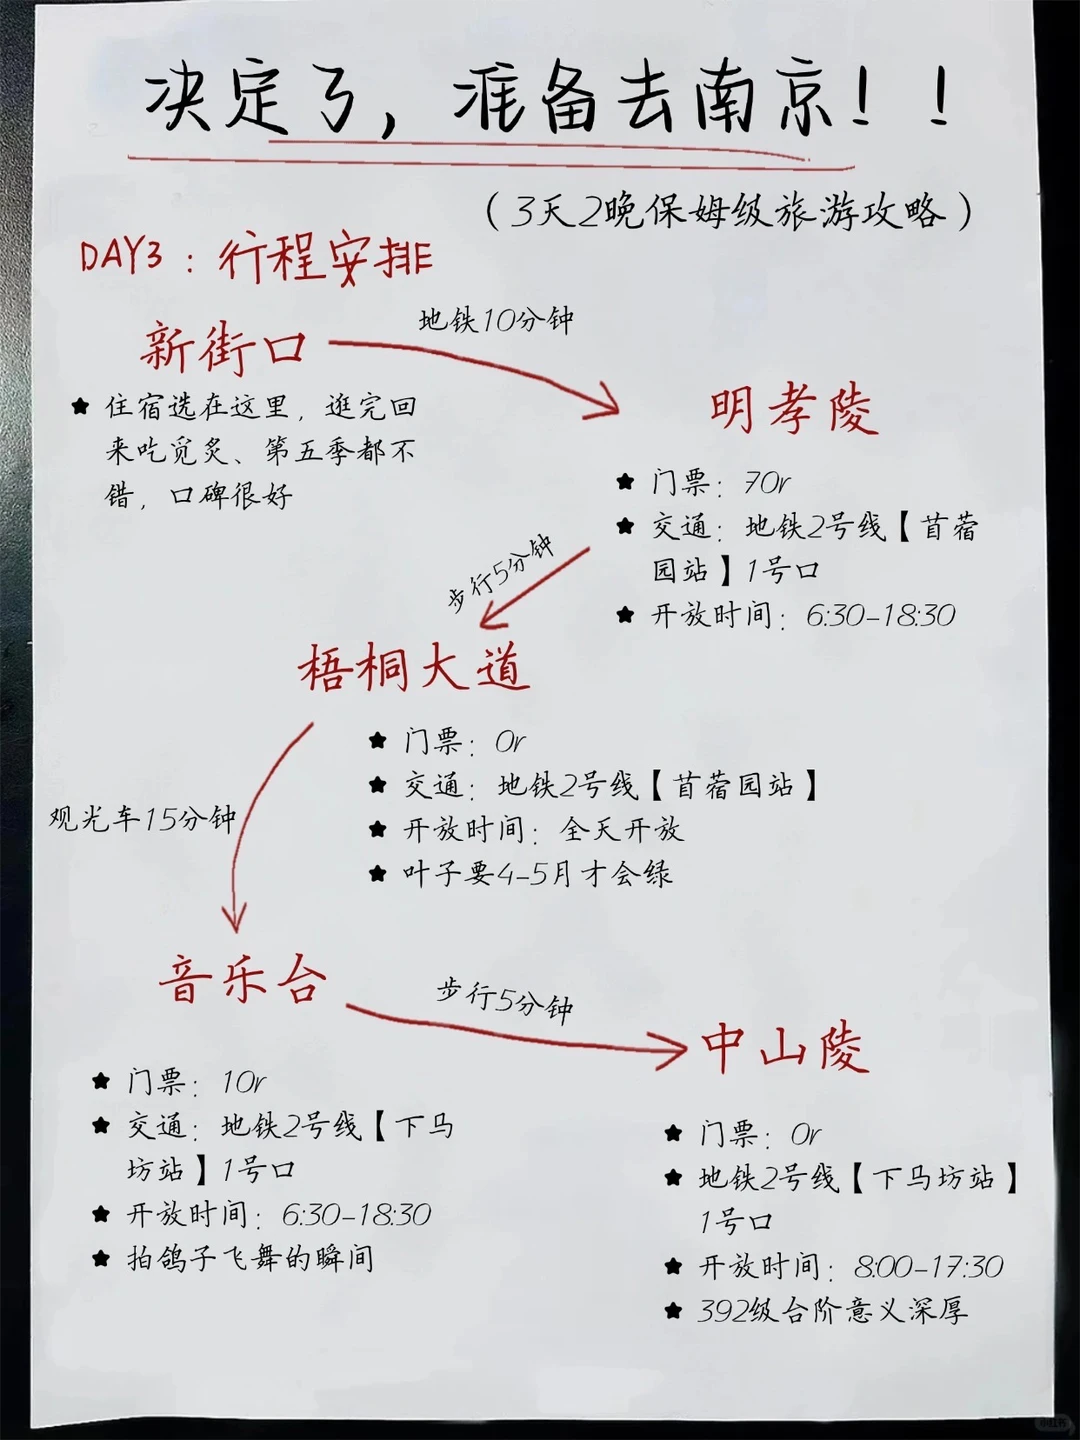 决定了，准备去南京！！
（3天2晚保姆级旅游攻略）
DAY3：行程安排
地铁10分钟
新街口
★ 住宿选在这里，逛完回
来吃觅炙、第五季都不
错，口碑很好
明孝陵
★ 门票：70r
★ 交通：地铁2号线【苜蓿
园站】1号口
★ 开放时间：6:30-18:30
步行5分钟
梧桐大道
★ 门票：0r
★ 交通：地铁2号线【苜蓿园站】
★ 开放时间：全天开放
★ 叶子要4-5月才会绿
观光车15分钟
音乐台
★ 门票：10r
★ 交通：地铁2号线【下马
坊站】1号口
★ 开放时间：6:30-18:30
★ 拍鸽子飞舞的瞬间
步行5分钟
中山陵
★ 门票：0r
★ 地铁2号线【下马坊站】
1号口
★ 开放时间：8:00-17:30
★ 392级台阶意义深厚